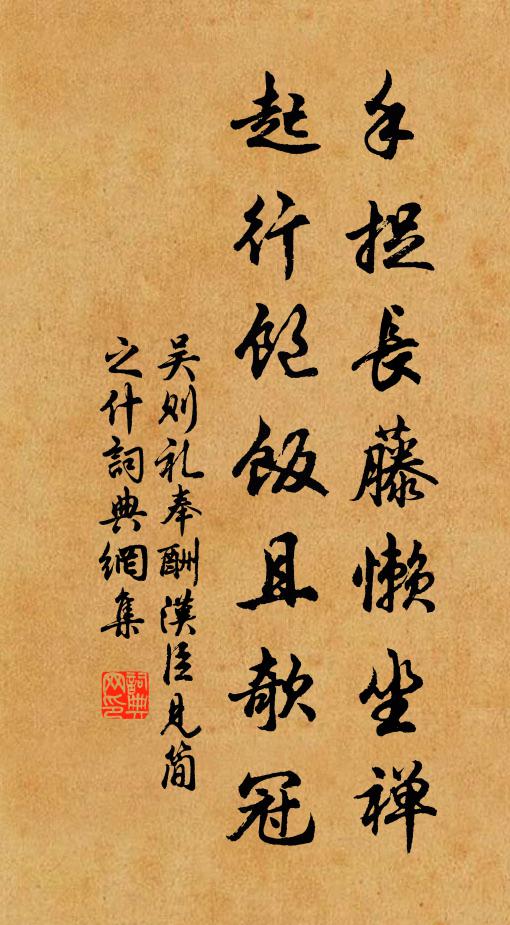 手捉長藤懶坐禅
起行飽飯且欹冠
吴则礼奉酬漢臣見简
之什詞典網集
詞典网印